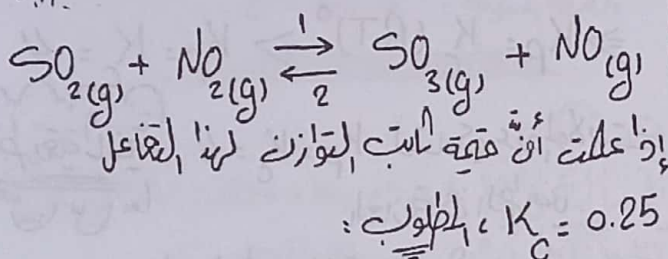 SO₂(g) + NO₂(g) ⇌ SO₃(g) + NO(g)
1
2
إذا علمت أنّ قيمة ثابت التوازن لهذا التفاعل
Kc = 0.25 ، المطلوب :